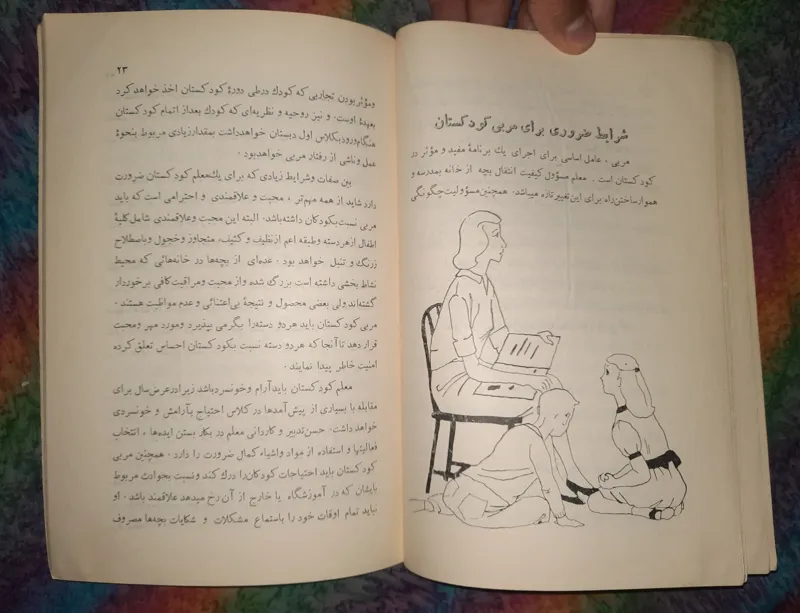 شرایط ضروری برای مربی کودکستان
مربی ، عامل اساسی برای اجرای یك برنامهٔ مفید و مؤثر در
کودکستان است . معلم مسؤول کیفیت انتقال بچه از خانه بمدرسه و
هموارساختن‌راه برای این‌تغییرتازه میباشد. همچنین مسؤولیت‌چگونگی
۲۳
ومؤثر بودن تجاربی که کودك درطی دورهٔ کودکستان اخذ خواهدکرد
بعهدهٔ اوست. و نیز روحیه و نظریه‌ای که کودك بعداز اتمام کودکستان
هنگام‌ورودبکلاس اول دبستان خواهدداشت بمقدارزیادی مربوط بنحوهٔ
عمل وناشی از رفتار مربی خواهدبود .
بین صفات وشرایط زیادی که برای یك‌معلم کودکستان ضرورت
دارد شاید از همه مهم‌تر ، محبت و علاقمندی و احترامی است که باید
مربی نسبت‌بکودکان داشته‌باشد. البته این محبت وعلاقمندی شامل‌کلیهٔ
اطفال ازهردسته وطبقه اعم ازنظیف و کثیف، متجاوز وخجول وباصطلاح
زرنگ و تنبل خواهد بود . عده‌ای از بچه‌ها در خانه‌هائی که محیط
نشاط بخشی داشته است بزرگ شده واز محبت ومراقبت‌کافی برخوردار
گشته‌اندولی بعضی محصول و نتیجهٔ بی‌اعتنائی وعدم مواظبت هستند .
مربی کودکستان باید هردو دسته‌را بگرمی بپذیرد ومورد مهر ومحبت
قرار دهد تا آنجا که هردو دسته نسبت بکودکستان احساس تعلق کرده
امنیت خاطر پیدا نمایند .
معلم کودکستان بایدآرام وخونسردباشد زیرادرعرض‌سال برای
مقابله با بسیاری از پیش‌آمدها درکلاس احتیاج بآرامش و خونسردی
خواهد داشت. حسن‌تدبیر و کاردانی معلم در بکار بستن ایده‌ها ، انتخاب
فعالیتها و استفاده از مواد واشیاء کمال ضرورت را دارد . همچنین مربی
کودکستان باید احتیاجات کودکان‌را درك کند ونسبت بحوادث مربوط
بایشان که در آموزشگاه یا خارج از آن رخ میدهد علاقمند باشد . او
نباید تمام اوقات خود را باستماع مشکلات و شکایات بچه‌ها مصروف